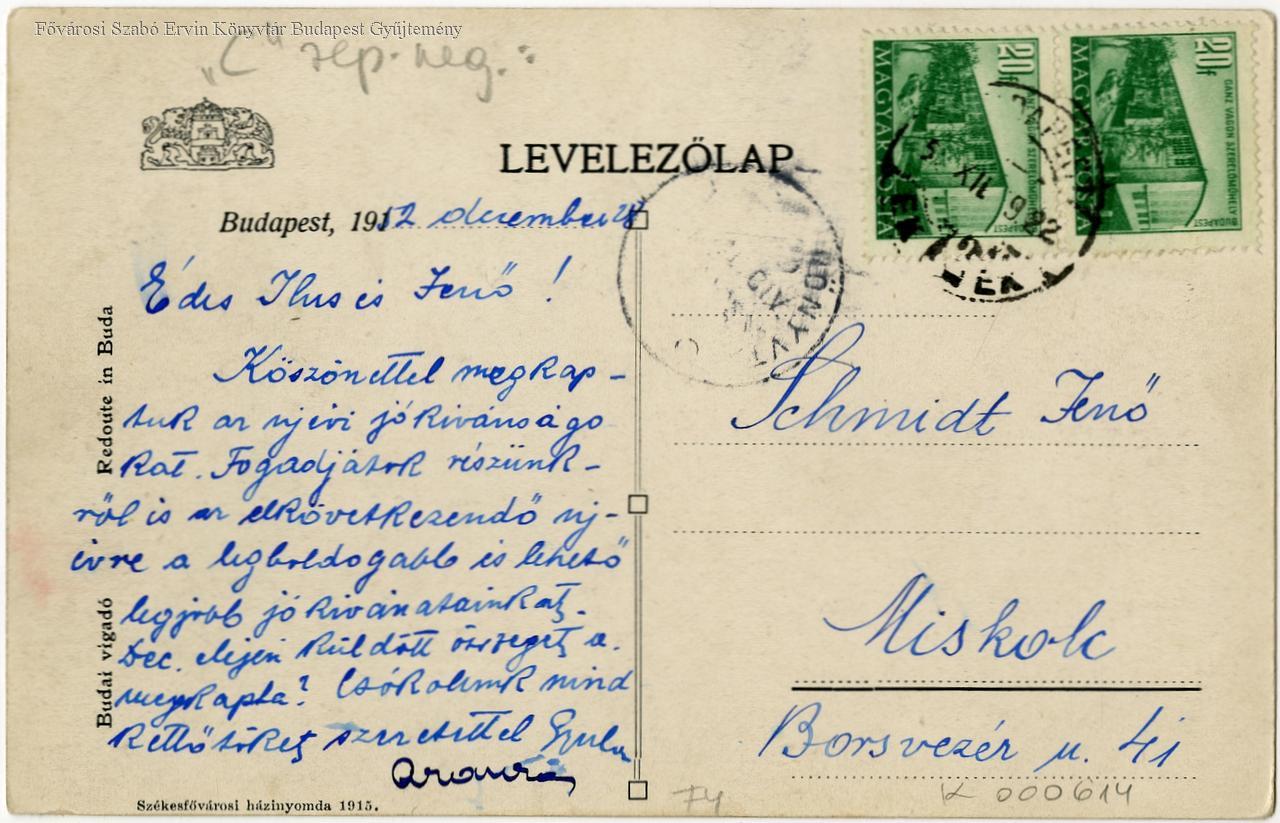 Fővárosi Szabó Ervin Könyvtár Budapest Gyűjtemény
"C" rep. neg.:
LEVELEZŐLAP
20f
MAGYAR POSTA
BUDAPEST
20f
MAGYAR POSTA
GANZ VAGON SZERELŐMŰHELY
BUDAPEST
Budapest, 1912 december 28
Édes Ilus és Jenő!
Köszönettel megkap-
tuk az újévi jókívánságo
kat. Fogadjátok részünk-
ről is az elkövetkezendő új-
évre a legboldogabb és lehető
legjobb jókívánatainkat.
Dec. elején küldött összeget a.
megkapta? Csókolunk mind
kettőtöket szeretettel Gyula
Schmidt Jenő
Miskolc
Borsvezér u. 41
Budai vigadó Redoute in Buda
Székesfővárosi házinyomda 1915.
74
K 000614